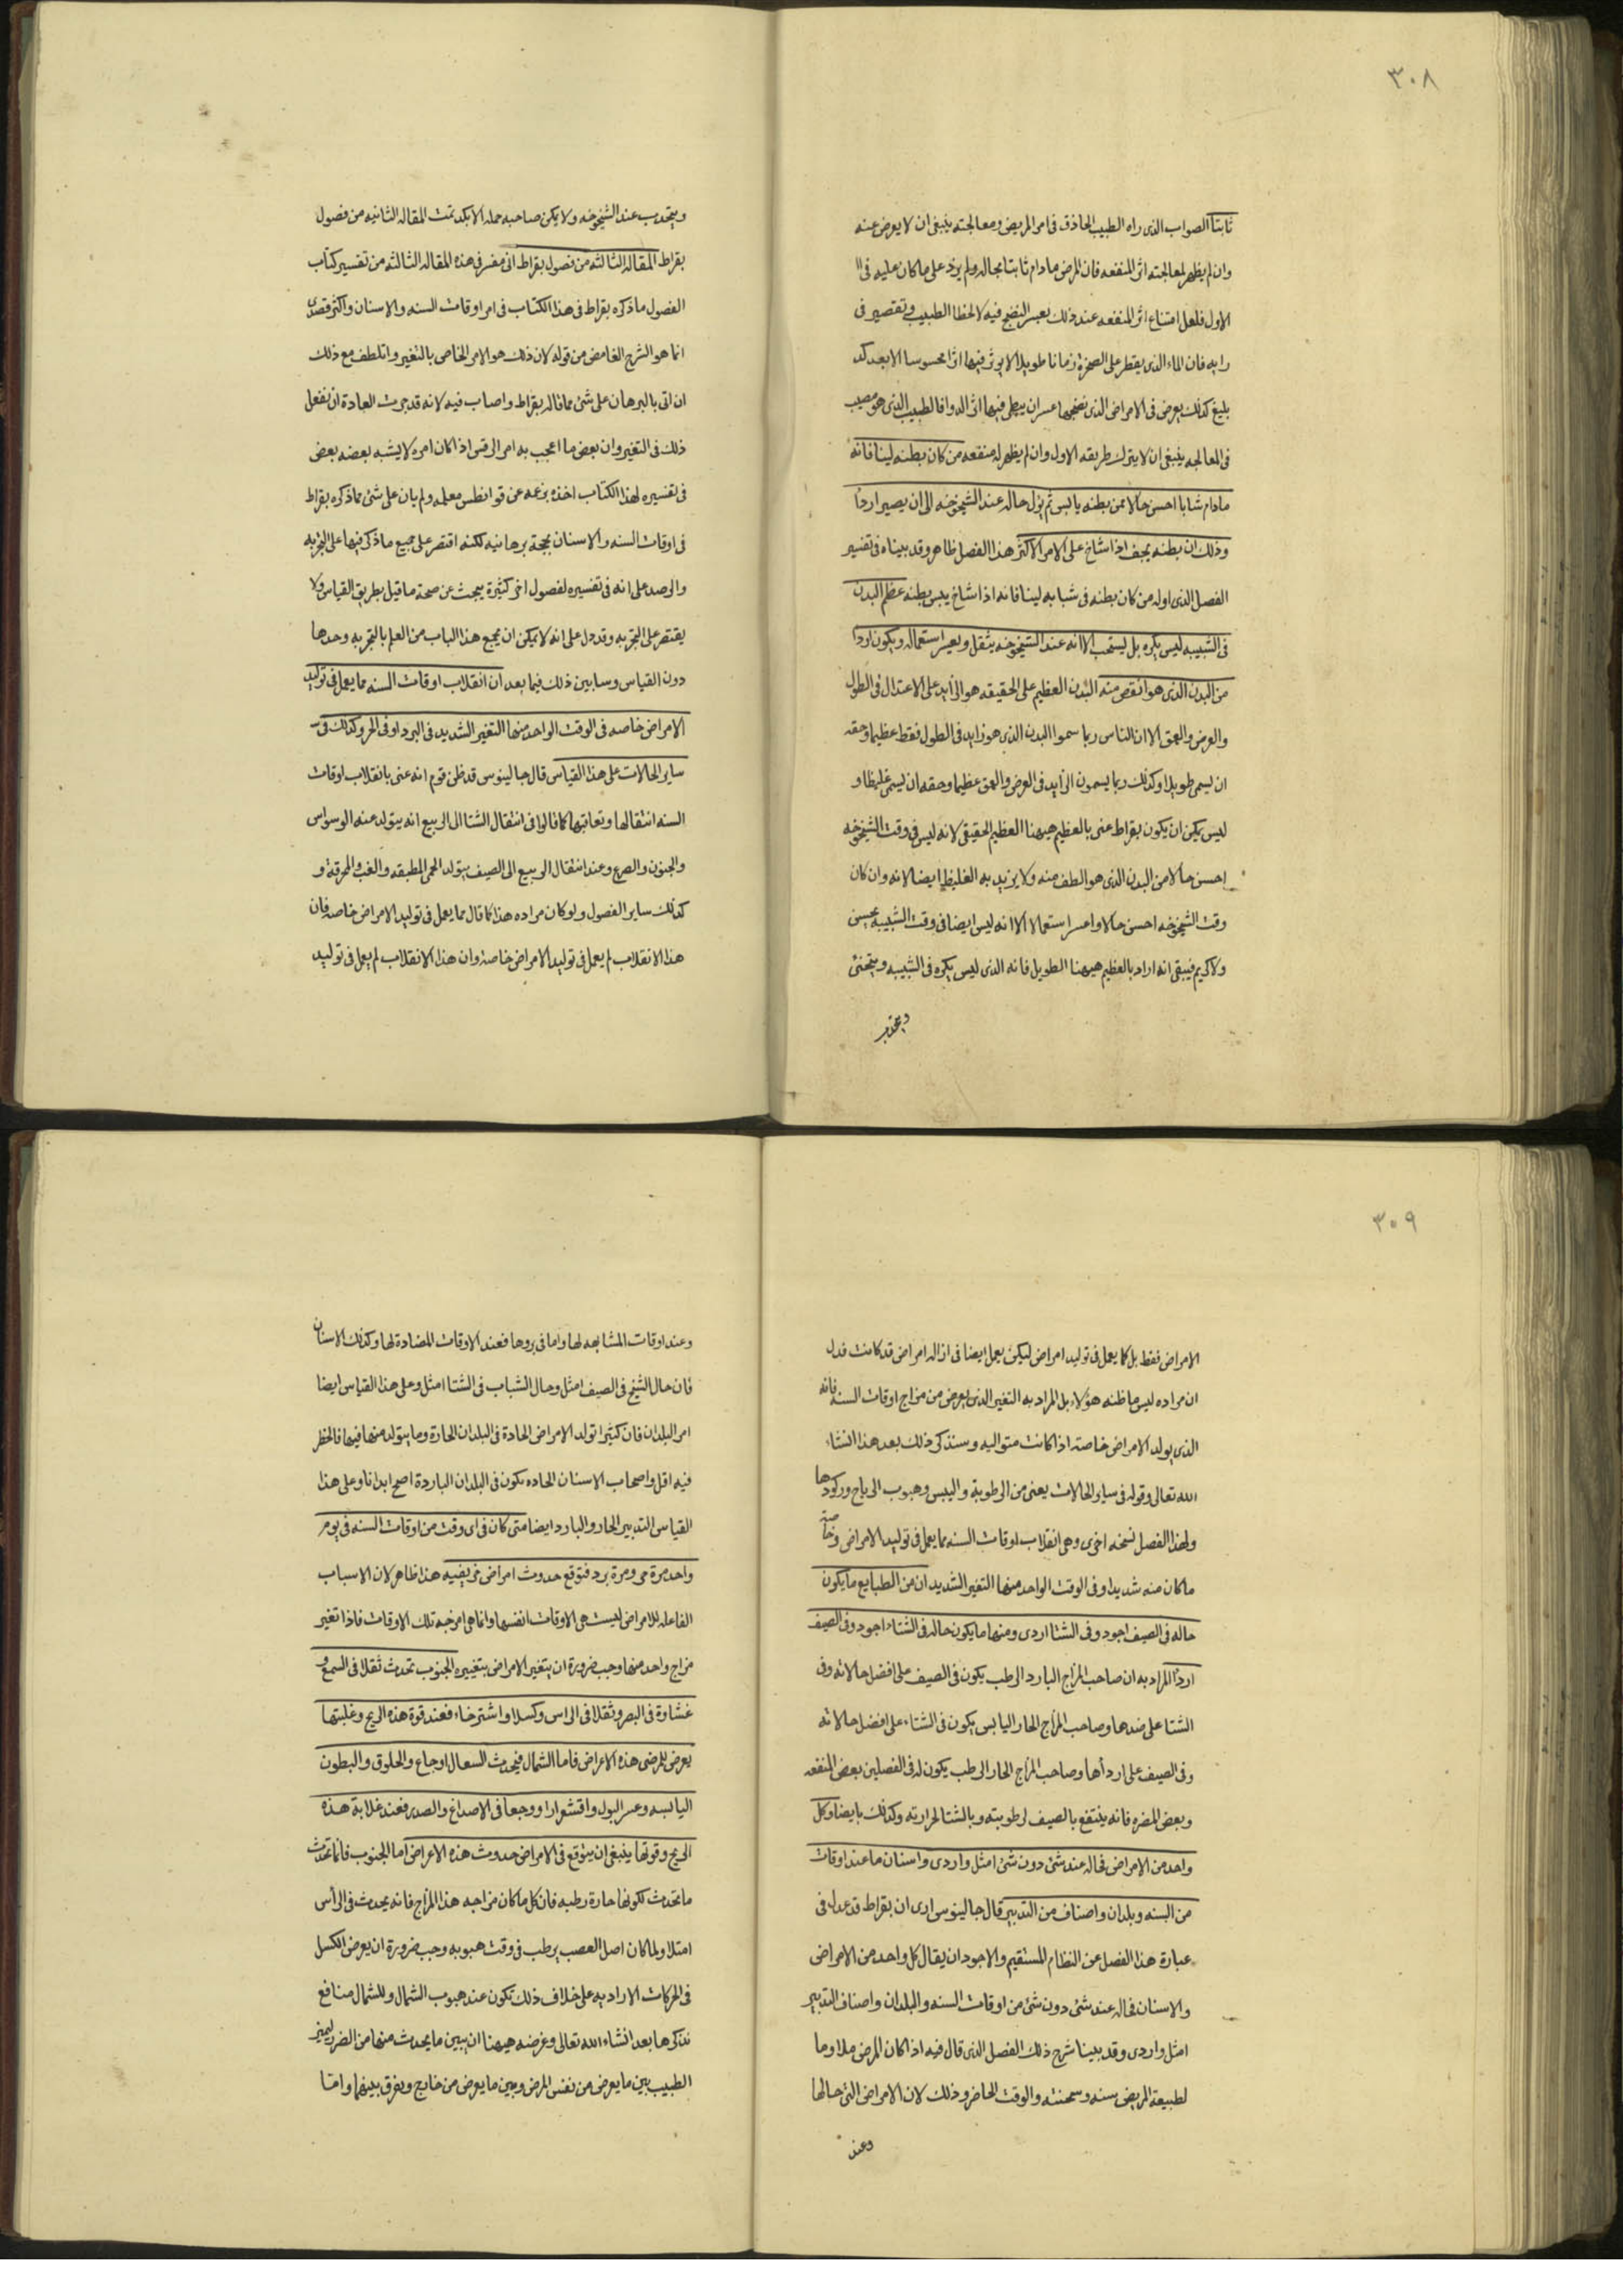 ٣٠٨
ثابتا الصواب الذى راه الطبيب الحاذق فى امر المريض ومعالجته ينبغى ان لا يعرض عنه
وان لم يظهر لمعالجته اثر المنفعه فان المرض مادام ثابتا بحاله ولم يزد على ما كان عليه فى ال
الاول فلعل امتناع اثر المنفعه عند ذلك بعسر النضج فيه لا لخطا الطبيب وتقصير فى
رايه فان الماء الذى يقطر على الصخرة زمانا طويلا لا يوثر فيها اثرا محسوسا الا بعد كد
بليغ كذلك يعرض فى الامراض الذى نضجها عسر ان يبطى فيها اثر الدوا فالطبيب الذى هو مصيب
فى المعالجه ينبغى ان لا يترك طريقه الاول وان لم يظهر له منفعه من كان بطنه لينا فانه
مادام شابا احسن حالا ممن بطنه يابس ثم يؤل حاله عند الشيخوخه الى ان يصير اردا
وذلك ان بطنه يجف اذا شاخ على الامر الاكثر هذا الفصل ظاهر وقد بيناه فى تفسير
الفصل الذى اوله من كان بطنه فى شبابه لينا فانه اذا شاخ يبس بطنه عظم البدن
فى الشبيبه ليس يكره بل يستحب الا انه عند الشيخوخه يثقل ويعسر استعماله ويكون اردا
من البدن الذى هو انقص منه البدن العظيم على الحقيقه هو الزايد على الاعتدال فى الطول
والعرض والعمق الا ان الناس ربما سموا البدن الذى هو زايد فى الطول فقط عظيما وحقه
ان يسمى طويلا وكذلك ربما يسمون الزايد فى العرض والعمق عظيما وحقه ان يسمى غليظا و
ليس يمكن ان يكون بقراط عنى بالعظيم هيهنا العظيم الحقيقى لانه ليس فى وقت الشيخوخه
احسن حالا من البدن الذى هو الطف منه ولا يريد به الغليظ ايضا لانه وان كان
وقت الشيخوخه احسن حالا واعسر استعمالا الا انه ليس ايضا فى وقت الشبيبه بحسن
ولا كريم فيبقى انه اراد بالعظيم هيهنا الطويل فانه الذى ليس يكره فى الشبيبه وينحنى
ويتحدب
ويتحدب عند الشيخوخه ولا يمكن صاحبه حمله الا بكد تمت المقاله الثانيه من فصول
بقراط المقاله الثالثه من فصول بقراط انى مفسر فى هذه المقاله الثالثه من تفسير كتاب
الفصول ما ذكره بقراط فى هذا الكتاب فى امر اوقات السنه والاسنان واكثر قصدى
انما هو الشرح الغامض من قوله لان ذلك هو الامر الخاص بالتغير واتلطف مع ذلك
ان اتى بالبرهان على شئ مما قاله بقراط واصاب فيه لانه قد جرت العادة ان نفعل
ذلك فى التغير وان بعض ما اعجب به امر الرقس اذا كان امره لا يشبه بعضه بعض
فى تفسيره لهذا الكتاب اخذه بزعمه عن قوانطس معلمه ولم يات على شئ مما ذكره بقراط
فى اوقات السنه والاسنان بحجة برهانيه لكنه اقتصر على جميع ما ذكر فيها على التجربه
والرصد على انه فى تفسيره لفصول اخر كثيرة يبحث عن صحة ما قيل بطريق القياس ولا
يقتصر على التجربه وقد دل على انه لا يمكن ان يجمع هذا الباب من العلم بالتجربه وحدها
دون القياس وسابين ذلك فيما بعد ان انقلاب اوقات السنه مما يعمل فى توليد
الامراض خاصه فى الوقت الواحد منها التغير الشديد فى البرد او فى الحر وكذلك فى
ساير الحالات على هذا القياس قال جالينوس قد ظن قوم انه عنى بانقلاب اوقات
السنه انتقالها وتعاقبها كما قالوا فى انتقال الشتا الى الربيع انه يتولد عنه الوسواس
والجنون والصرع وعند انتقال الربيع الى الصيف يتولد الحمى المطبقه والغب والمحرقه و
كذلك ساير الفصول ولو كان مراده هذا لما قال مما يعمل فى توليد الامراض خاصه فان
هذا الانقلاب لم يعمل فى توليد الامراض خاصة وان هذا الانقلاب لم يعمل فى توليد
٣٠٩
الامراض فقط بل كما يعمل فى توليد امراض ليكن يعمل ايضا فى ازاله امراض قد كانت فدل
ان مراده ليس ما ظنه هؤلاء بل المراد به التغير الذى يعرض من مزاج اوقات السنه فانه
الذى يولد الامراض خاصته اذا كانت متواليه وسنذكر ذلك بعد هذا انشاء
الله تعالى وقوله فى ساير الحالات يعنى من الرطوبة واليبس وهبوب الرياح وركودها
ولهذا الفصل نسخه اخرى وهى انقلاب اوقات السنه مما يعمل فى توليد الامراض وخاصة
ما كان منه شديدا وفى الوقت الواحد منها التغير الشديد ان من الطبايع ما يكون
حاله فى الصيف اجود وفى الشتا اردى ومنها ما يكون حاله فى الشتاء اجود وفى الصيف
اردأ المراد به ان صاحب المزاج البارد الرطب يكون فى الصيف على افضل حالاته وفى
الشتا على ضدها وصاحب المزاج الحار اليابس يكون فى الشتاء على افضل حالاته
وفى الصيف على اردأها وصاحب المزاج الحار الرطب يكون له فى الفصلين بعض المنفعه
وبعض المضره فانه ينتفع بالصيف لرطوبته وبالشتا لحرارته وكذلك بايضا وكل
واحد من الامراض فحاله عند شئ دون شئ امثل واردى واسنان ما عند اوقات
من السنه وبلدان واصناف من التدبير قال جالينوس ارى ان بقراط قد عدل فى
عبارة هذا الفصل عن النظام المستقيم والاجود ان يقال كل واحد من الامراض
والاسنان فحاله عند شئ دون شئ من اوقات السنه والبلدان واصناف التدبير
امثل واردى وقد بينا شرح ذلك الفصل الذى قال فيه اذا كان المرض ملاوما
لطبيعة المريض سنه وسحنته والوقت الحاضر وذلك لان الامراض التى حالها
وعند
وعند اوقات المشابهه لها واما فى بروها فعند الاوقات المضادة لها وكذلك الاسنان
فان حال الشيخ فى الصيف امثل وحال الشباب فى الشتا امثل وعلى هذا القياس ايضا
امر البلدان فان كثيرا تولد الامراض الحادة فى البلدان الحارة وما يتولد منها فيها فالخطر
فيه اقل واصحاب الاسنان الحاده تكون فى البلدان الباردة اصح ابدانا وعلى هذا
القياس التدبير الحار والبارد ايضا متى كان فى اى وقت من اوقات السنه فى يوم
واحد مرة حر ومرة برد فتوقع حدوث امراض خريفيه هذا ظاهر لان الاسباب
الفاعله للامراض ليست هى الاوقات انفسها وانما هى امزجه تلك الاوقات فاذا تغير
مزاج واحد منها وجب ضرورة ان يتغير الامراض بتغييره الجنوب تحدث ثقلا فى السمع و
غشاوة فى البصر وثقلا فى الراس وكسلا واشترخاء فعند قوة هذه الريح وغلبتها
يعرض للمرضى هذه الاعراض فاما الشمال فيحدث السعال اوجاع والحلوق والبطون
اليابسه وعسر البول واقشعرارا ووجعا فى الاصداغ والصدر فعند غلابة هذه
الريح وقوتها ينبغى ان يتوقع فى الامراض حدوث هذه الاعراض اما الجنوب فانما تحدث
ما تحدث لكونها حارة رطبه فان كل ما كان مزاجه هذا المزاج فانه يحدث فى الرأس
امتلا ولما كان اصل العصب يرطب فى وقت هبوبه وجب ضرورة ان يعرض الكسل
فى الحركات الاراديه على خلاف ذلك تكون عند هبوب الشمال وللشمال منافع
نذكرها بعد انشاء الله تعالى وغرضه هيهنا ان يبين ما يحدث منها من الضرر ليميز
الطبيب بين ما يعرض من نفس المرض وبين ما يعرض من خارج ويفرق بينهما وامتا